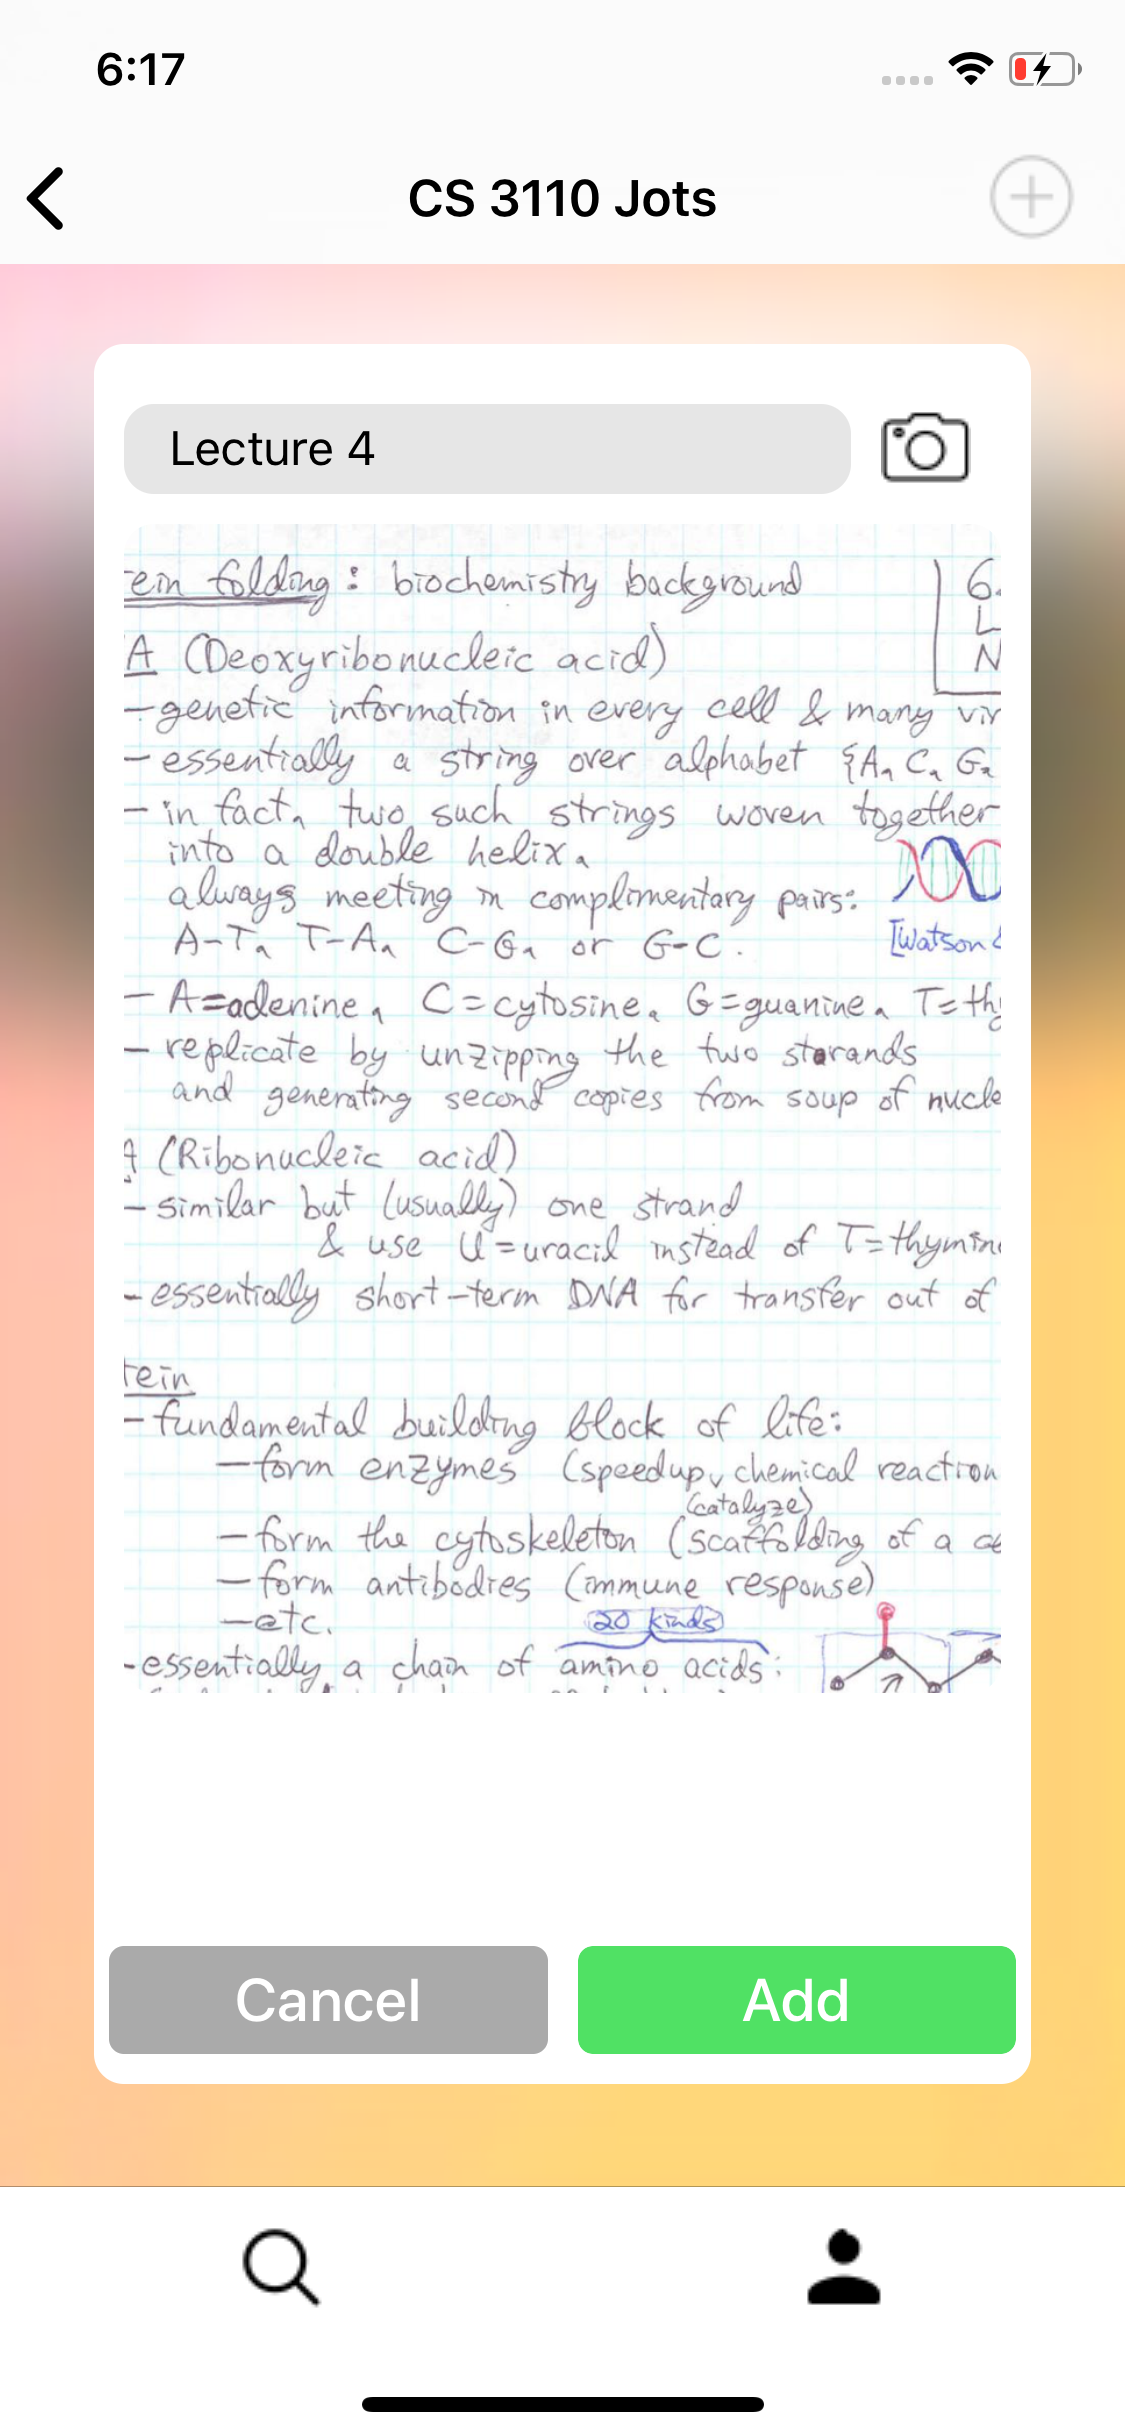 6:17
CS 3110 Jots
Lecture 4
ein folding: biochemistry background
6.
L
A (Deoxyribonucleic acid)
N
-genetic information in every cell & many vir
-essentially a string over alphabet {A, C, G,
-in fact, two such strings woven together
into a double helix,
always meeting in complimentary pairs:
A-T, T-A, C-G, or G-C.
[Watson &
-A=adenine, C=cytosine, G=guanine, T=thy
-replicate by unzipping the two starands
and generating second copies from soup of nucle
A (Ribonucleic acid)
-similar but (usually) one strand
& use U=uracil instead of T=thymine
-essentially short-term DNA for transfer out of
tein
-fundamental building block of life:
-form enzymes (speedup chemical reaction
(catalyze)
-form the cytoskeleton (scaffolding of a ce
-form antibodies (immune response)
-etc.
20 kinds
-essentially a chain of amino acids:
Cancel
Add